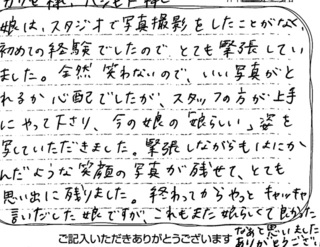 娘は、スタジオで写真撮影をしたことがなく
初めての経験でしたので、とても緊張してい
ました。全然笑わないので、いい写真がと
れるか心配でしたが、スタッフの方が上手
にやって下さり、今の娘の「娘らしい」姿を
写していただきました。緊張しながらもはにか
んだような笑顔の写真が残せて、とても
思い出に残りました。終わってからやっとキャッキャ
言いだした娘ですが、これもまた娘らしくて良かった
なぁと思いました
ありがとうござい
ご記入いただきありがとうございます